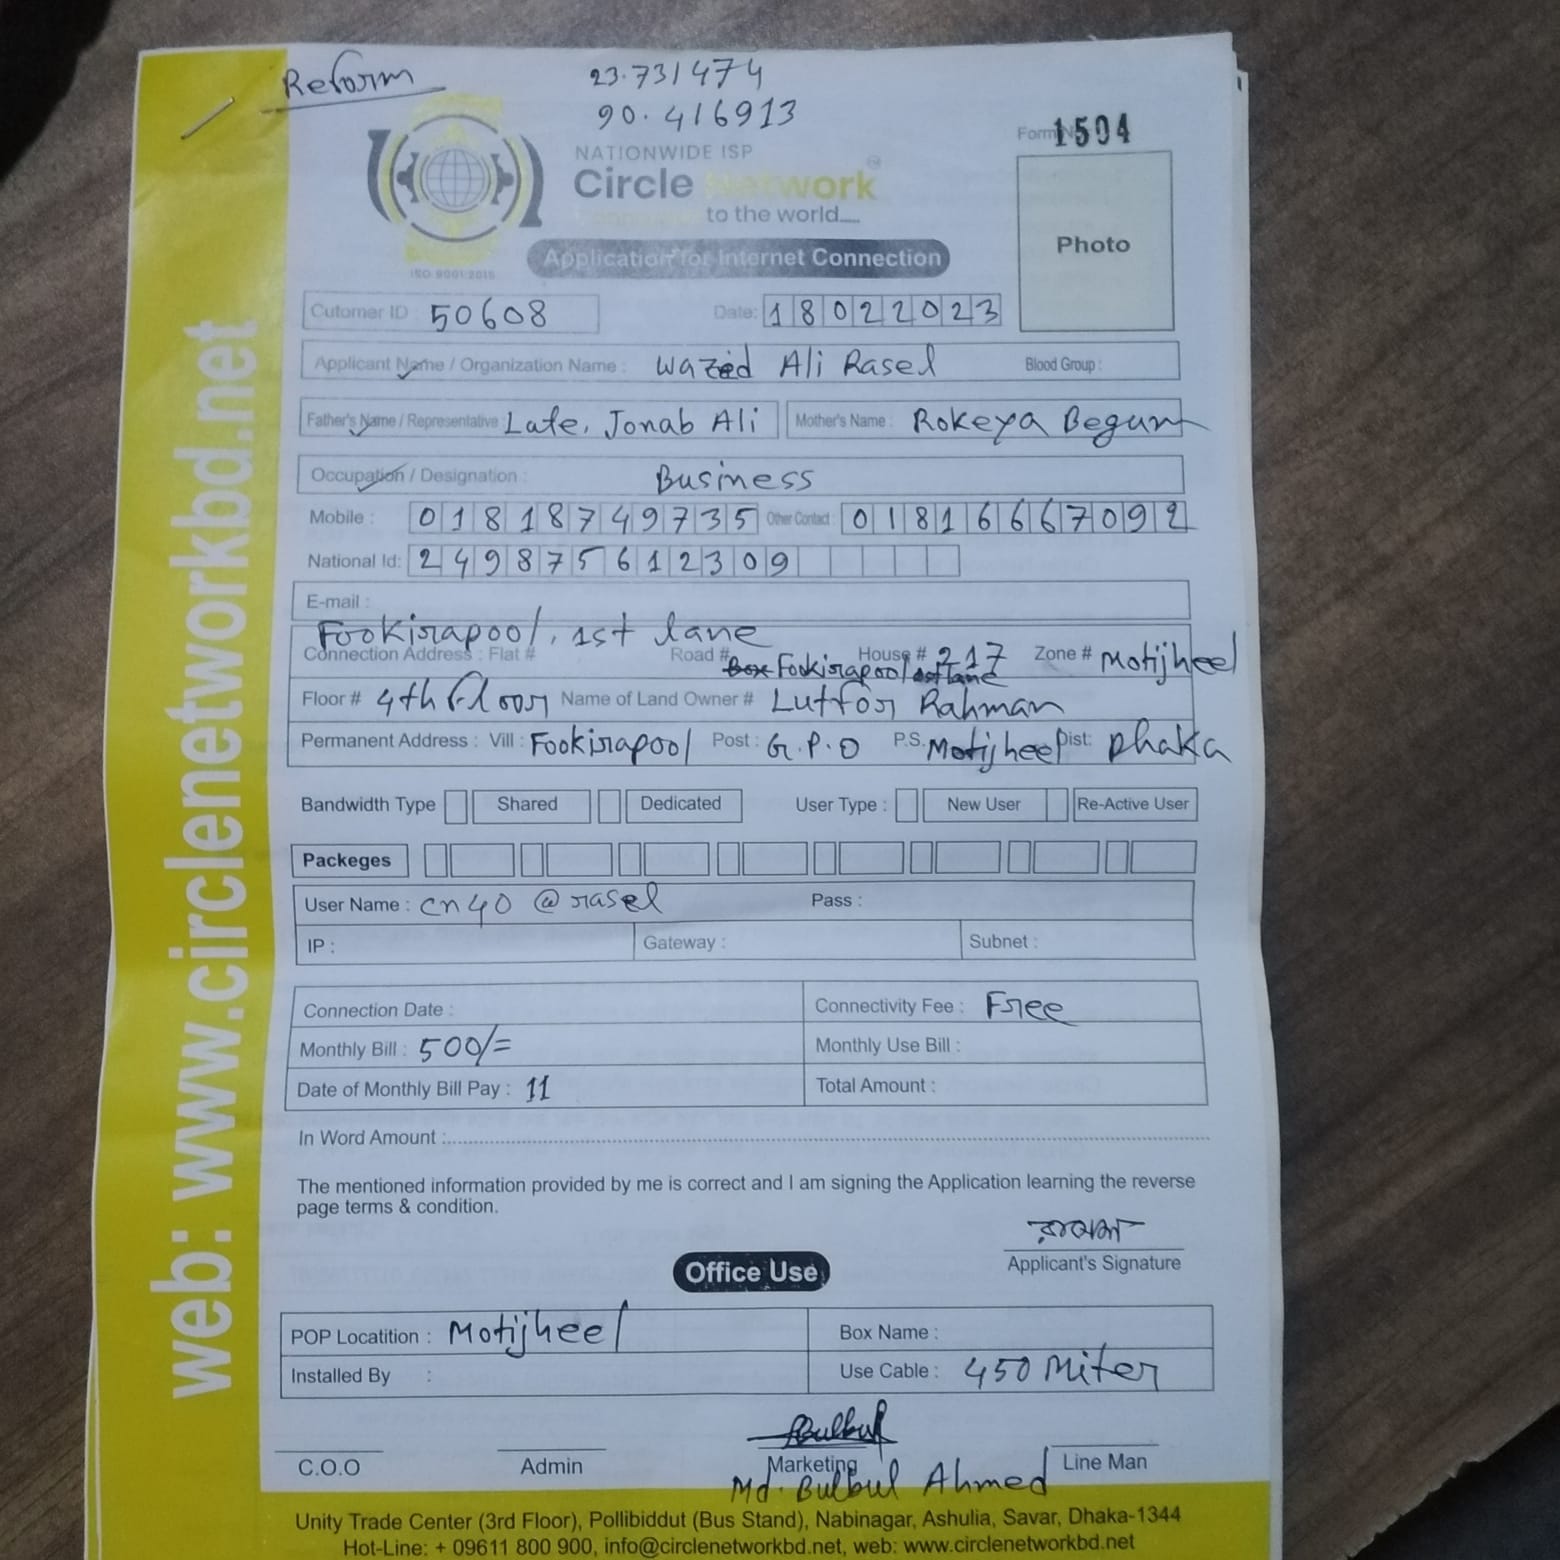 Reform
23.731474
90.416913
Form No 1504
NATIONWIDE ISP
Circle Network
to the world....
Photo
ISO 9001:2015
Application for Internet Connection
Cutomer ID : 50608 Date: 18022023
Applicant Name / Organization Name : Wazed Ali Rasel Blood Group :
Father's Name / Representative : Late. Jonab Ali Mother's Name : Rokeya Begum
Occupation / Designation : Business
Mobile : 01818749735 Other Contact : 01816667092
National Id: 249875612309
E-mail :
Fookirapool, 1st lane
Connection Address : Flat # Road # House # 217 Zone # Motijheel
Box Fookirapool 1st lane
Floor # 4th floor Name of Land Owner # Lutfor Rahman
Permanent Address : Vill : Fookirapool Post : G.P.O P.S. Motijheel Dist: Dhaka
Bandwidth Type Shared Dedicated User Type : New User Re-Active User
Packeges
User Name : cn40@rasel Pass :
IP : Gateway : Subnet :
Connection Date : Connectivity Fee : Free
Monthly Bill : 500/= Monthly Use Bill :
Date of Monthly Bill Pay : 11 Total Amount :
In Word Amount :
The mentioned information provided by me is correct and I am signing the Application learning the reverse
page terms & condition.
Applicant's Signature
Office Use
POP Locatition : Motijheel Box Name :
Installed By : Use Cable : 450 Miter
Bulbul
C.O.O Admin Marketing Line Man
Md. Bulbul Ahmed
Unity Trade Center (3rd Floor), Pollibiddut (Bus Stand), Nabinagar, Ashulia, Savar, Dhaka-1344
Hot-Line: + 09611 800 900, info@circlenetworkbd.net, web: www.circlenetworkbd.net
web: www.circlenetworkbd.net